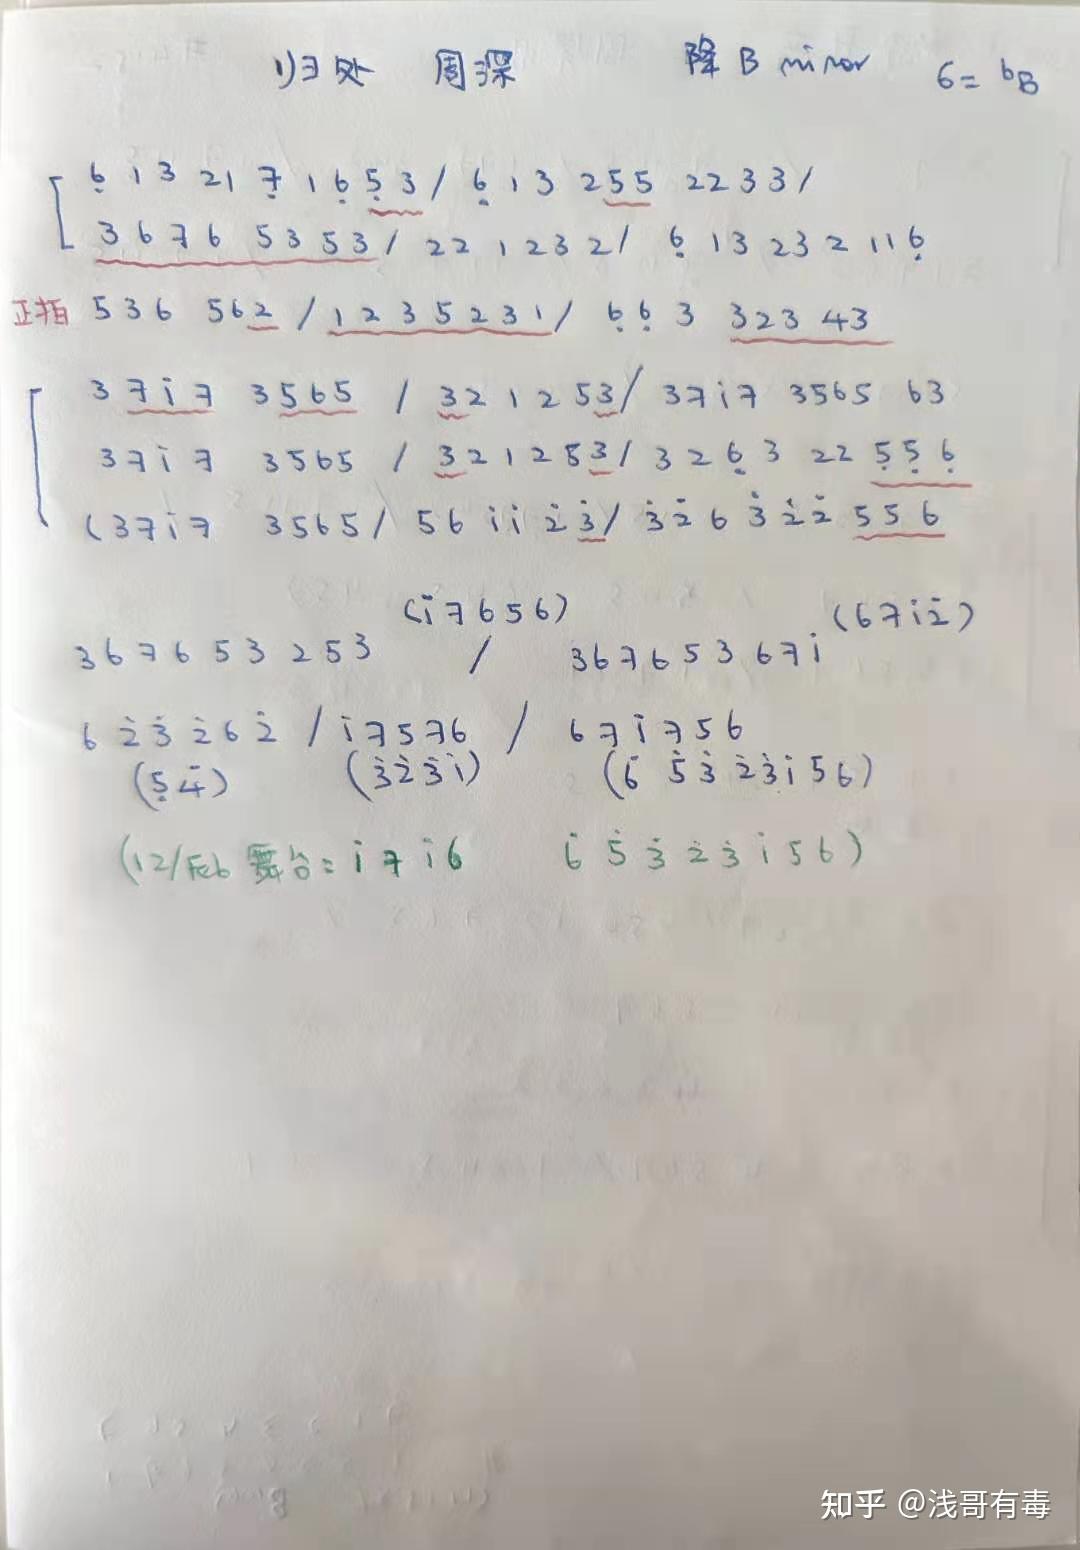 归处 周深 降B minor 6=ᵇB
6̣ 1 3 21 7̣ 1 6̣ 5̣ 3 / 6̣ 1 3 2 5 5 2 2 3 3 /
3 6 7 6 5 3 5 3 / 2 2 1 2 3 2 / 6̣ 1 3 2 3 2 1 1 6̣
正拍 5 3 6 5 6 2 / 1 2 3 5 2 3 1 / 6̣ 6̣ 3 3 2 3 4 3
3 7 i 7 3 5 6 5 / 3 2 1 2 5 3 / 3 7 i 7 3 5 6 5 6 3
3 7 i 7 3 5 6 5 / 3 2 1 2 5 3 / 3 2 6̣ 3 2 2 5̣ 5̣ 6̣
(3 7 i 7 3 5 6 5 / 5 6 i i 2̇ 3̇ / 3̇ 2̇ 6 3̇ 2̇ 2̇ 5 5 6
(i 7 6 5 6) (6 7 i 2̇)
3 6 7 6 5 3 2 5 3 / 3 6 7 6 5 3 6 7 i
6 2̇ 3̇ 2̇ 6 2̇ / i 7 5 7 6 / 6 7 i 7 5 6
(5̣ 4̇) (3̇ 2̇ 3̇ i) (6̇ 5̇ 3̇ 2̇ 3̇ i 5 6)
(12/Feb 舞台: i 7 i 6 6̇ 5̇ 3̇ 2̇ 3̇ i 5 6)
知乎 @浅哥有毒